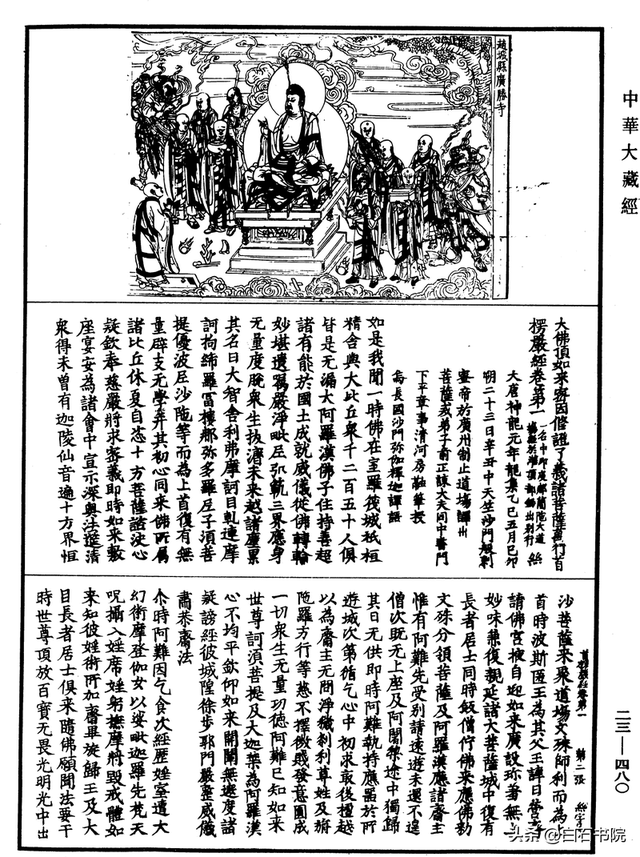 中華大藏經
趙城縣廣勝寺
大佛頂如來密因修證了義諸菩薩萬行首
楞嚴經卷第一 一名中印度那蘭陀大道場經於灌頂部錄出別行 絲
大唐神龍元年龍集乙巳五月己卯
朔二十三日辛丑中天竺沙門般剌
蜜帝於廣州制止道場譯出
菩薩戒弟子前正諫大夫同中書門
下平章事清河房融筆授
烏長國沙門弥伽釋迦譯語
如是我聞一時佛在室羅筏城祇桓
精舍與大比丘衆千二百五十人俱
皆是无漏大阿羅漢佛子住持善超
諸有能於國土成就威儀從佛轉輪
妙堪遺囑嚴淨毗尼弘軌三界應身
无量度脫衆生拔濟未來越諸塵累
其名曰大智舍利弗摩訶目乹連摩
訶拘絺羅富樓那弥多羅尼子須菩
提優波尼沙陁等而為上首復有無
量辟支无學并其初心同來佛所屬
諸比丘休夏自恣十方菩薩諮決心
疑欽奉慈嚴將求密義即時如來敷
座宴安為諸會中宣示深奧法筵清
衆得未曾有迦陵仙音遍十方界恒
首楞嚴經卷第一 第二張 絲字
沙菩薩來聚道場文殊師利而為上
首時波斯匿王為其父王諱日營齋
請佛宮掖自迎如來廣設珎羞無上
妙味兼復親延諸大菩薩城中復有
長者居士同時飯僧佇佛來應佛勑
文殊分領菩薩及阿羅漢應諸齋主
惟有阿難先受別請遠遊未還不遑
僧次既无上座及阿闍梨途中獨歸
其日无供即時阿難執持應器於所
遊城次第循乞心中初求最後檀越
以為齋主无問淨穢刹利尊姓及旃
陁羅方行等慈不擇微賤發意圓成
一切衆生无量功德阿難已知如來
世尊訶須菩提及大迦葉為阿羅漢
心不均平欽仰如來開闡無遮度諸
疑謗經彼城隍徐步郭門嚴整威儀
肅恭齋法
尒時阿難因乞食次經歷婬室遭大
幻術摩登伽女以娑毗迦羅先梵天
呪攝入婬席婬躬撫摩將毀戒體如
來知彼婬術所加齋畢旋歸王及大
臣長者居士俱來隨佛願聞法要于
時世尊頂放百寶无畏光明光中出
二三—四八〇
头条@白石书院